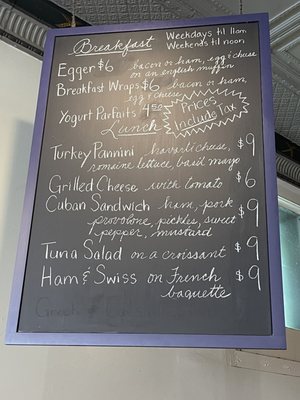 Breakfast
Weekdays til 11am
Weekends til noon
Egger $6 bacon or ham, egg & cheese
on an english muffin
Breakfast Wraps $6 bacon or ham,
egg & cheese
Yogurt Parfaits 4.50
Prices
Include Tax
Lunch
Turkey Pannini havarti cheese, $9
romaine lettuce, basil mayo
Grilled Cheese with tomato $6
Cuban Sandwich ham, pork $9
provolone, pickles, sweet
pepper, mustard
Tuna Salad on a croissant $9
Ham & Swiss on French $9
baguette